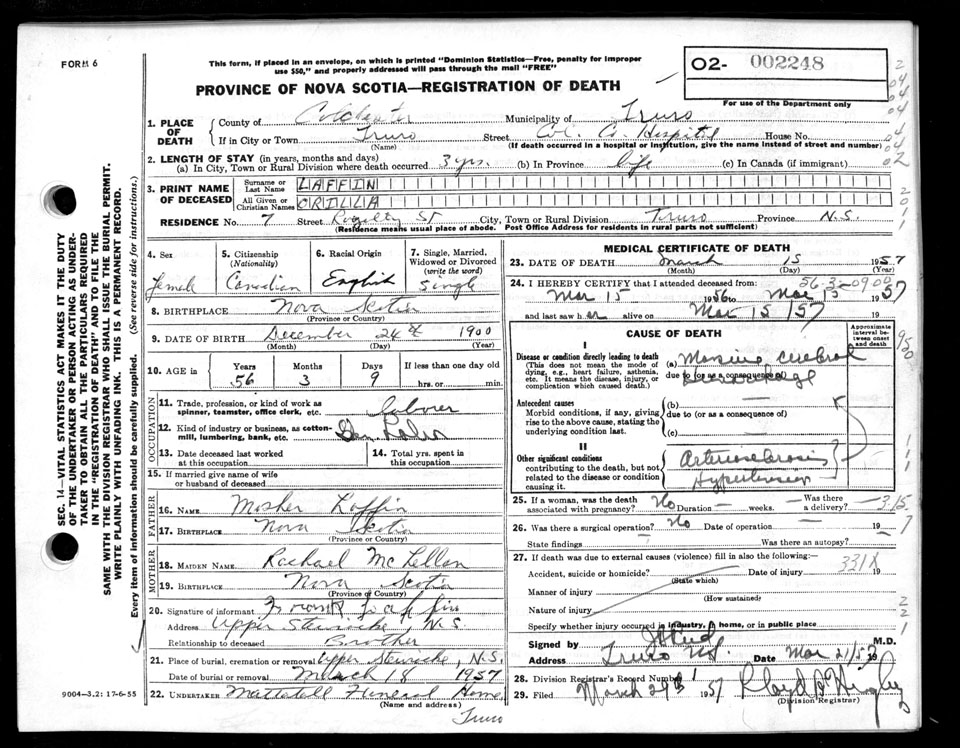 FORM 6
This form, if placed in an envelope, on which is printed "Dominion Statistics—Free, penalty for improper
use $50," and properly addressed will pass through the mail "FREE"
O2- 002248
For use of the Department only
PROVINCE OF NOVA SCOTIA—REGISTRATION OF DEATH
1. PLACE OF DEATH
County of Colchester Municipality of Truro
If in City or Town Truro Street Col. Co. Hospital House No.
(Name) (If death occurred in a hospital or institution, give the name instead of street and number)
2. LENGTH OF STAY (in years, months and days)
(a) In City, Town or Rural Division where death occurred 3 yrs. (b) In Province life (c) In Canada (if immigrant)
3. PRINT NAME OF DECEASED
Surname or Last Name LAFFIN
All Given or Christian Names ORILLA
RESIDENCE No. 7 Street St City, Town or Rural Division Truro Province N.S.
(Residence means usual place of abode. Post Office Address for residents in rural parts not sufficient)
4. Sex female
5. Citizenship (Nationality) Canadian
6. Racial Origin English
7. Single, Married, Widowed or Divorced (write the word) Single
8. BIRTHPLACE Nova Scotia
(Province or Country)
9. DATE OF BIRTH December 24th 1900
(Month) (Day) (Year)
10. AGE in Years 56 Months 3 Days 9 If less than one day old hrs. or min.
OCCUPATION
11. Trade, profession or kind of work as spinner, teamster, office clerk, etc. laborer
12. Kind of industry or business, as cotton-mill, lumbering, bank, etc. Gen Labor
13. Date deceased last worked at this occupation
14. Total yrs. spent in this occupation
15. If married give name of wife or husband of deceased
FATHER
16. NAME Mosher Laffin
17. BIRTHPLACE Nova Scotia
(Province or Country)
MOTHER
18. MAIDEN NAME Rachael McLellan
19. BIRTHPLACE Nova Scotia
(Province or Country)
20. Signature of informant Laffin
Address Upper Stewiacke N.S.
Relationship to deceased Brother
21. Place of burial, cremation or removal Upper Stewiacke, N.S.
Date of burial or removal March 18 1957
22. UNDERTAKER Mattatall Funeral Home,
(Name and address)
Truro
9004—3.2: 17-6-55
SEC. 14—VITAL STATISTICS ACT MAKES IT THE DUTY
OF THE UNDERTAKER OR PERSON ACTING AS UNDER-
TAKER TO OBTAIN ALL THE PARTICULARS REQUIRED
IN THE "REGISTRATION OF DEATH" AND TO FILE THE
SAME WITH THE DIVISION REGISTRAR WHO SHALL ISSUE THE BURIAL PERMIT.
WRITE PLAINLY WITH UNFADING INK. THIS IS A PERMANENT RECORD.
Every item of information should be carefully supplied. (See reverse side for instructions.)
MEDICAL CERTIFICATE OF DEATH
23. DATE OF DEATH March 15 1957
(Month) (Day) (Year)
24. I HEREBY CERTIFY that I attended deceased from:
Mar 15 1956 to Mar 15 1957
and last saw her alive on Mar 15 /57 19
CAUSE OF DEATH
Approximate interval between onset and death
I
Disease or condition directly leading to death
(This does not mean the mode of dying, e.g., heart failure, asthenia, etc. It means the disease, injury, or complication which caused death.)
(a) Massive cerebral
due to (or as a consequence of)
hemorrhage
Antecedent causes
Morbid conditions, if any, giving rise to the above cause, stating the underlying condition last.
(b) —
due to (or as a consequence of)
(c) —
II
Other significant conditions
contributing to the death, but not related to the disease or condition causing it.
Arteriosclerosis
Hypertension
25. If a woman, was the death associated with pregnancy? No Duration — weeks. Was there a delivery? —
26. Was there a surgical operation? No Date of operation — 19
State findings Was there an autopsy?
27. If death was due to external causes (violence) fill in also the following:
331X
Accident, suicide or homicide? Date of injury 19
(State which)
Manner of injury
(How sustained)
Nature of injury
Specify whether injury occurred in industry, in home, or in public place
Signed by M.D.
Address Truro NS. Date Mar 21/57
28. Division Registrar's Record Number
29. Filed March 29th 1957 Lloyd
(Division Registrar)